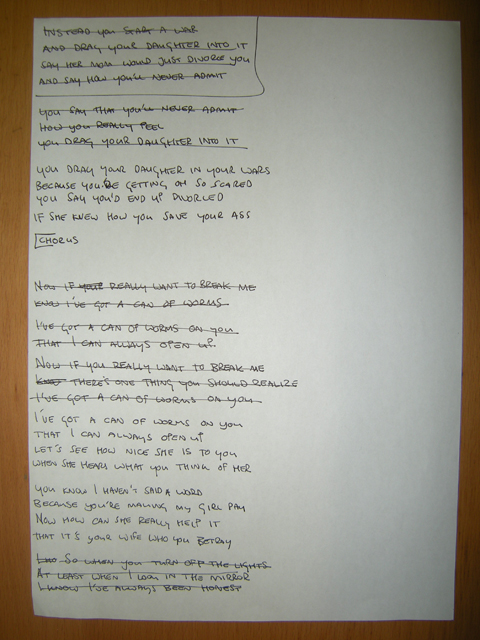 INSTEAD YOU START A WAR
AND DRAG YOUR DAUGHTER INTO IT
SAY HER MOM WOULD JUST DIVORCE YOU
AND SAY HOW YOU'LL NEVER ADMIT
YOU SAY THAT YOU'LL NEVER ADMIT
HOW YOU REALLY FEEL
YOU DRAG YOUR DAUGHTER INTO IT
YOU DRAG YOUR DAUGHTER IN YOUR WARS
BECAUSE YOU'RE GETTING OH SO SCARED
YOU SAY YOU'D END UP DIVORCED
IF SHE KNEW HOW YOU SAVE YOUR ASS
CHORUS
NOW IF YOUR REALLY WANT TO BREAK ME
KNOW I'VE GOT A CAN OF WORMS
I'VE GOT A CAN OF WORMS ON YOU
THAT I CAN ALWAYS OPEN UP
NOW IF YOU REALLY WANT TO BREAK ME
THERE'S ONE THING YOU SHOULD REALIZE
I'VE GOT A CAN OF WORMS ON YOU
I'VE GOT A CAN OF WORMS ON YOU
THAT I CAN ALWAYS OPEN UP
LET'S SEE HOW NICE SHE IS TO YOU
WHEN SHE HEARS WHAT YOU THINK OF HER
YOU KNOW I HAVEN'T SAID A WORD
BECAUSE YOU'RE MAKING MY GIRL PAY
NOW HOW CAN SHE REALLY HELP IT
THAT IT'S YOUR WIFE WHO YOU BETRAY
SO WHEN YOU TURN OFF THE LIGHTS
AT LEAST WHEN I LOOK IN THE MIRROR
I KNOW I'VE ALWAYS BEEN HONEST